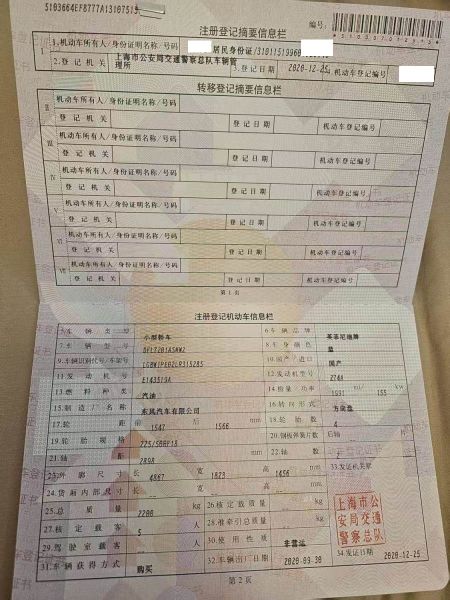 5103664EF8777A13107515
注册登记摘要信息栏
编号:
1.机动车所有人/身份证明名称/号码
居民身份证/3101151996
2.登记机关
上海市公安局交通警察总队车辆管理所
3.登记日期
2020-12-25
4.机动车登记编号
转移登记摘要信息栏
机动车所有人/身份证明名称/号码
II
登记机关
登记日期
机动车登记编号
机动车所有人/身份证明名称/号码
III
登记机关
登记日期
机动车登记编号
机动车所有人/身份证明名称/号码
IV
登记机关
登记日期
机动车登记编号
机动车所有人/身份证明名称/号码
V
登记机关
登记日期
机动车登记编号
机动车所有人/身份证明名称/号码
VI
登记机关
登记日期
机动车登记编号
机动车所有人/身份证明名称/号码
VII
登记机关
登记日期
机动车登记编号
第1页
注册登记机动车信息栏
5.车辆类型
小型轿车
6.车辆品牌
英菲尼迪牌
7.车辆型号
8.车身颜色
蓝
9.车辆识别代号/车架号
10.国产/进口
国产
11.发动机号
12.发动机型号
274A
13.燃料种类
汽油
14.排量/功率
1991
155
kw
15.制造厂名称
东风汽车有限公司
16.转向形式
方向盘
17.轮距
前 1547
后 1566
mm
18.轮胎数
4
19.轮胎规格
225/50RF18
20.钢板弹簧片数
后轴
21.轴距
mm
22.轴数
2
23.外廓尺寸
长 4867
宽 1823
高 1456
mm
33.发证机关章
24.货厢内部尺寸
长
宽
高
mm
25.总质量
2200
kg
26.核定载质量
kg
上海市公安局交通警察总队
27.核定载客
5
人
28.准牵引总质量
kg
29.驾驶室载客
人
30.使用性质
非营运
31.车辆获得方式
购买
32.车辆出厂日期
2020-09-30
34.发证日期
2020-12-25
第2页